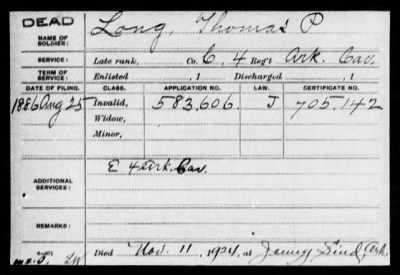 DEAD
NAME OF SOLDIER: Long, Thomas P
SERVICE: Late rank, Co. E, 4 Reg't Ark. Cav.
TERM OF SERVICE: Enlisted , 1 Discharged , 1
DATE OF FILING. CLASS. APPLICATION NO. LAW. CERTIFICATE NO.
1886 Aug 25 Invalid, 583,606. J 705.142
Widow,
Minor,
ADDITIONAL SERVICES: E 4 Ark. Cav.
REMARKS:
Died Nov. 11, 1924, at Jenny Lind, Ark